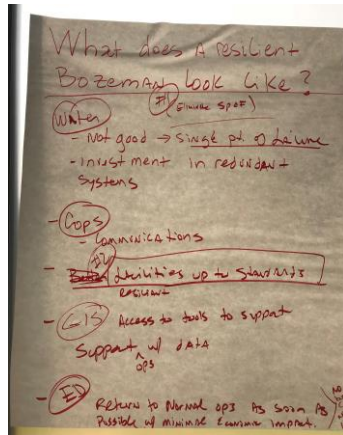 What does A resilient
Bozeman Look Like?
#1 Eliminate SPOF)
Water
- Not good → Single pt. of failure
- Investment in redundant
Systems
- Cops
- Communications
#2
- Facilities up to Standards
resilient
- GIS Access to tools to support
Support w/ DATA
ops
- ED
Return to Normal ops As soon As
Possible w/ minimal Economic impact.